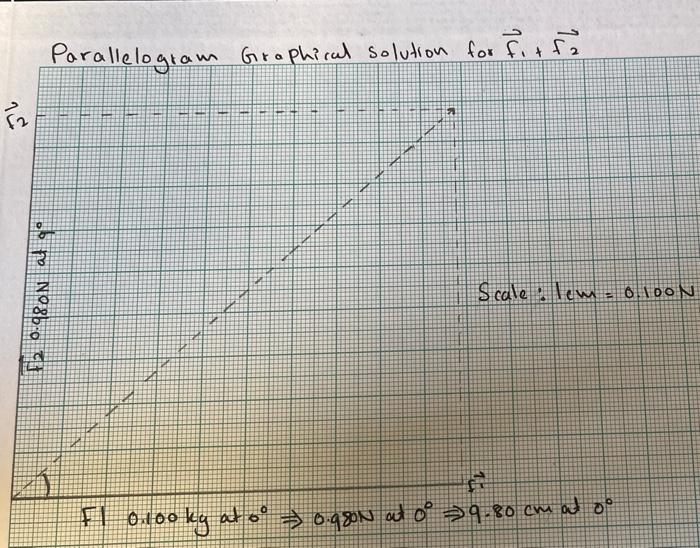 Parallelogram Graphical Solution for f₁ + f₂
f₂
F2 0.980N at 9°
Scale : 1cm = 0.100N
f₁
F1 0.100 kg at 0° ⇒ 0.980N at 0° ⇒ 9.80 cm at 0°